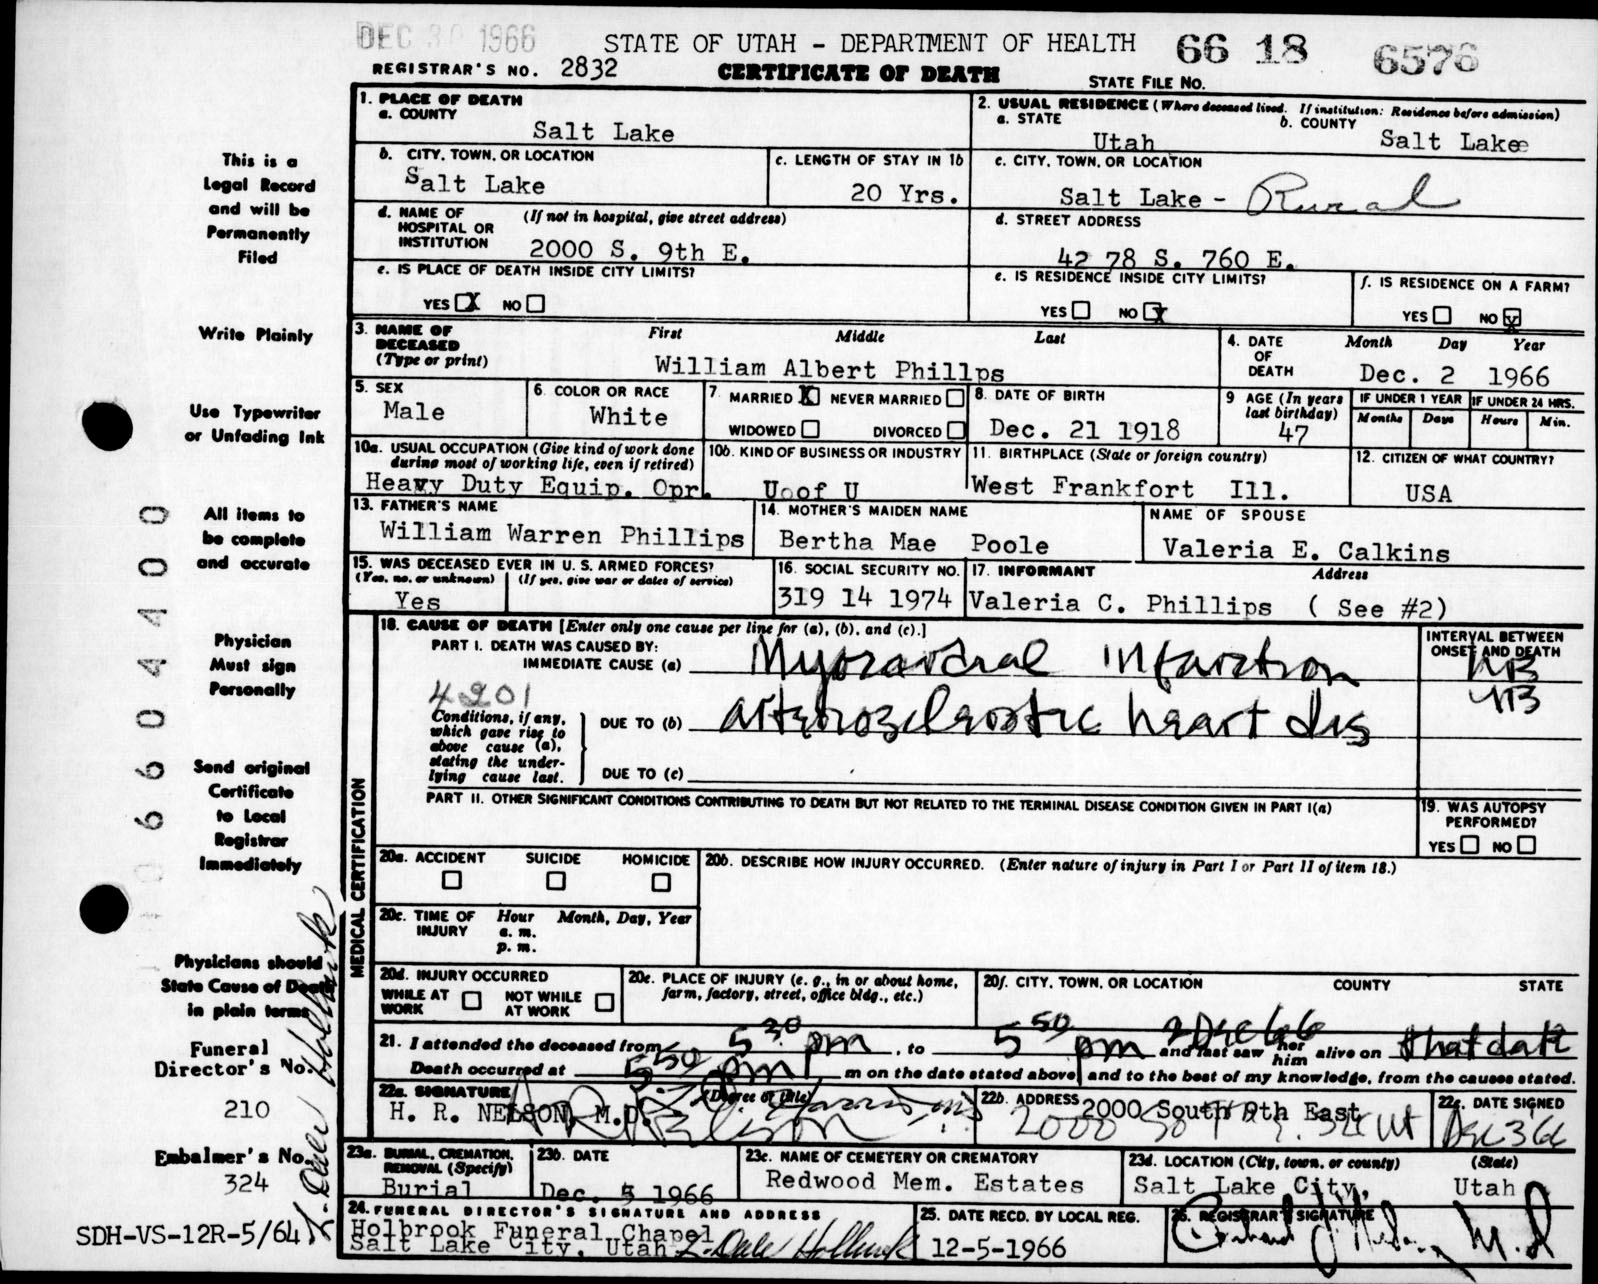 DEC 30 1966
STATE OF UTAH - DEPARTMENT OF HEALTH 66 18 6576
REGISTRAR'S NO. 2832 CERTIFICATE OF DEATH STATE FILE NO.
This is a
Legal Record
and will be
Permanently
Filed
Write Plainly
Use Typewriter
or Unfading Ink
All items to
be complete
and accurate
Physician
Must sign
Personally
Send original
Certificate
to Local
Registrar
Immediately
Physicians should
State Cause of Death
in plain terms
Funeral
Director's No.
210
Embalmer's No.
324
SDH-VS-12R-5/64
0 6 6 0 4 4 0 0
1. PLACE OF DEATH
a. COUNTY
Salt Lake
2. USUAL RESIDENCE (Where deceased lived. If institution: Residence before admission)
a. STATE Utah b. COUNTY Salt Lake
b. CITY, TOWN, OR LOCATION
Salt Lake
c. LENGTH OF STAY IN 1b
20 Yrs.
c. CITY, TOWN, OR LOCATION
Salt Lake - Rural
d. NAME OF HOSPITAL OR INSTITUTION (If not in hospital, give street address)
2000 S. 9th E.
d. STREET ADDRESS
42 78 S. 760 E.
e. IS PLACE OF DEATH INSIDE CITY LIMITS?
YES X NO
e. IS RESIDENCE INSIDE CITY LIMITS?
YES NO X
f. IS RESIDENCE ON A FARM?
YES NO X
3. NAME OF DECEASED (Type or print) First Middle Last
William Albert Phillps
4. DATE OF DEATH Month Day Year
Dec. 2 1966
5. SEX
Male
6. COLOR OR RACE
White
7. MARRIED X NEVER MARRIED
WIDOWED DIVORCED
8. DATE OF BIRTH
Dec. 21 1918
9 AGE (In years last birthday)
47
IF UNDER 1 YEAR IF UNDER 24 HRS.
Months Days Hours Min.
10a. USUAL OCCUPATION (Give kind of work done during most of working life, even if retired)
Heavy Duty Equip. Opr.
10b. KIND OF BUSINESS OR INDUSTRY
U of U
11. BIRTHPLACE (State or foreign country)
West Frankfort Ill.
12. CITIZEN OF WHAT COUNTRY?
USA
13. FATHER'S NAME
William Warren Phillips
14. MOTHER'S MAIDEN NAME
Bertha Mae Poole
NAME OF SPOUSE
Valeria E. Calkins
15. WAS DECEASED EVER IN U. S. ARMED FORCES?
(Yes, no, or unknown) (If yes, give war or dates of service)
Yes
16. SOCIAL SECURITY NO.
319 14 1974
17. INFORMANT Address
Valeria C. Phillips ( See #2)
MEDICAL CERTIFICATION
18. CAUSE OF DEATH [Enter only one cause per line for (a), (b), and (c).]
INTERVAL BETWEEN ONSET AND DEATH
PART I. DEATH WAS CAUSED BY:
IMMEDIATE CAUSE (a) Myocardial Infarction
4201
Conditions, if any, which gave rise to above cause (a), stating the underlying cause last.
DUE TO (b) Arteriosclerotic heart dis
DUE TO (c)
PART II. OTHER SIGNIFICANT CONDITIONS CONTRIBUTING TO DEATH BUT NOT RELATED TO THE TERMINAL DISEASE CONDITION GIVEN IN PART I(a)
19. WAS AUTOPSY PERFORMED?
YES NO
20a. ACCIDENT SUICIDE HOMICIDE
20b. DESCRIBE HOW INJURY OCCURRED. (Enter nature of injury in Part I or Part II of item 18.)
20c. TIME OF INJURY Hour Month, Day, Year
a. m.
p. m.
20d. INJURY OCCURRED
WHILE AT WORK NOT WHILE AT WORK
20e. PLACE OF INJURY (e. g., in or about home, farm, factory, street, office bldg., etc.)
20f. CITY, TOWN, OR LOCATION COUNTY STATE
21. I attended the deceased from 5 30 pm, to 5 50 pm 2 Dec 66 and last saw her him alive on that date
Death occurred at 5:50 pm m on the date stated above, and to the best of my knowledge, from the causes stated.
22a. SIGNATURE (Degree or title)
H. R. NELSON, M.D.
22b. ADDRESS
2000 South 9th East
22c. DATE SIGNED
Dec 3 66
23a. BURIAL, CREMATION, REMOVAL (Specify)
Burial
23b. DATE
Dec. 5 1966
23c. NAME OF CEMETERY OR CREMATORY
Redwood Mem. Estates
23d. LOCATION (City, town, or county) (State)
Salt Lake City, Utah
24. FUNERAL DIRECTOR'S SIGNATURE AND ADDRESS
Holbrook Funeral Chapel
Salt Lake City, Utah L. Dale Holbrook
25. DATE RECD. BY LOCAL REG.
12-5-1966
26. REGISTRAR'S SIGNATURE
M.D